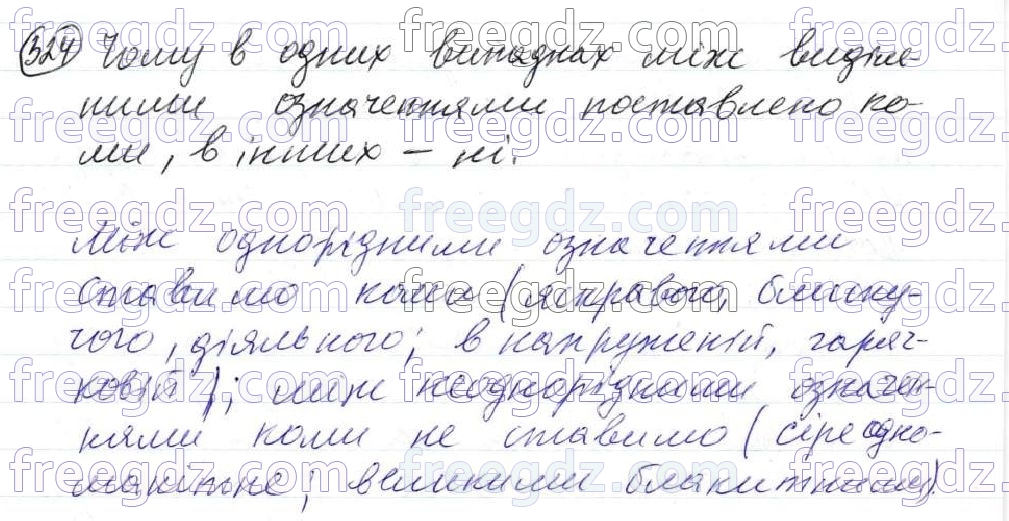 324 Чому в одних випадках між виділе-
ними означеннями поставлено ко-
ми, в інших – ні.
Між однорідними означеннями
ставимо коми (яскравого, блиску-
чого, діяльного; в напруженій, гаряч-
ковій); між неоднорідними означен-
нями коми не ставимо (сіре одно-
манітне; великими блакитними).
freegdz.com